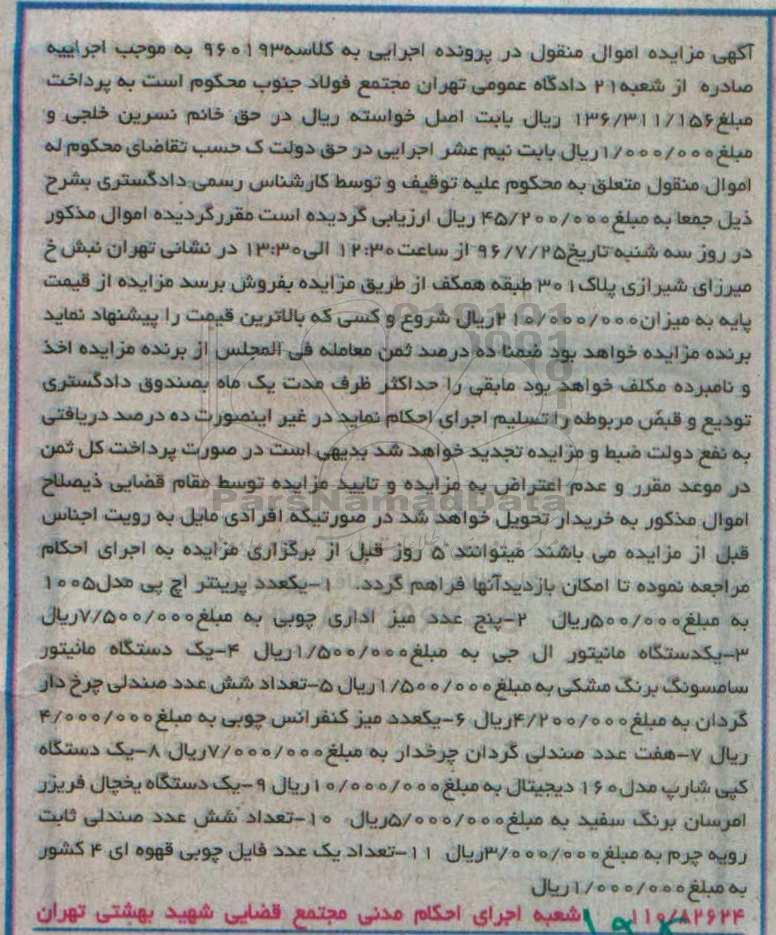 آگهی مزایده اموال منقول در پرونده اجرایی به کلاسه۹۶۰۱۹۳ به موجب اجراییه
صادره از شعبه۲۱ دادگاه عمومی تهران مجتمع فولاد جنوب محکوم است به پرداخت
مبلغ۱۳۶/۳۱۱/۱۵۶ ریال بابت اصل خواسته ریال در حق خانم نسرین خلجی و
مبلغ۱/۰۰۰/۰۰۰ریال بابت نیم عشر اجرایی در حق دولت ک حسب تقاضای محکوم له
اموال منقول متعلق به محکوم علیه توقیف و توسط کارشناس رسمی دادگستری بشرح
ذیل جمعا به مبلغ۴۵/۲۰۰/۰۰۰ ریال ارزیابی گردیده است مقررگردیده اموال مذکور
در روز سه شنبه تاریخ۹۶/۷/۲۵ از ساعت۱۲:۳۰ الی۱۳:۳۰ در نشانی تهران نبش خ
میرزای شیرازی پلاک۳۰۱ طبقه همکف از طریق مزایده بفروش برسد مزایده از قیمت
پایه به میزان۲۱۰/۰۰۰/۰۰۰ریال شروع و کسی که بالاترین قیمت را پیشنهاد نماید
برنده مزایده خواهد بود ضمنا ده درصد ثمن معامله فی المجلس از برنده مزایده اخذ
و نامبرده مکلف خواهد بود مابقی را حداکثر ظرف مدت یک ماه بصندوق دادگستری
تودیع و قبض مربوطه را تسلیم اجرای احکام نماید در غیر اینصورت ده درصد دریافتی
به نفع دولت ضبط و مزایده تجدید خواهد شد بدیهی است در صورت پرداخت کل ثمن
در موعد مقرر و عدم اعتراض به مزایده و تایید مزایده توسط مقام قضایی ذیصلاح
ParsNamadData
اموال مذکور به خریدار تحویل خواهد شد در صورتیکه افرادی مایل به رویت اجناس
قبل از مزایده می باشند میتوانند ۵ روز قبل از برگزاری مزایده به اجرای احکام
مراجعه نموده تا امکان بازدیدآنها فراهم گردد. ۱-یکعدد پرینتر اچ پی مدل۱۰۰۵
به مبلغ۵۰۰/۰۰۰ریال ۲-پنج عدد میز اداری چوبی به مبلغ۷/۵۰۰/۰۰۰ریال
۳-یکدستگاه مانیتور ال جی به مبلغ۱/۵۰۰/۰۰۰ریال ۴-یک دستگاه مانیتور
سامسونگ برنگ مشکی به مبلغ۱/۵۰۰/۰۰۰ریال ۵-تعداد شش عدد صندلی چرخ دار
گردان به مبلغ۴/۲۰۰/۰۰۰ریال ۶-یکعدد میز کنفرانس چوبی به مبلغ۴/۰۰۰/۰۰۰
ریال ۷-هفت عدد صندلی گردان چرخدار به مبلغ۷/۰۰۰/۰۰۰ریال ۸-یک دستگاه
کپی شارپ مدل۱۶۰ دیجیتال به مبلغ۱۰/۰۰۰/۰۰۰ریال ۹-یک دستگاه یخچال فریزر
امرسان برنگ سفید به مبلغ۵/۰۰۰/۰۰۰ریال ۱۰-تعداد شش عدد صندلی ثابت
رویه چرم به مبلغ۳/۰۰۰/۰۰۰ریال ۱۱-تعداد یک عدد فایل چوبی قهوه ای ۴ کشور
به مبلغ۱/۰۰۰/۰۰۰ریال
۱۱۰/۸۲۶۲۴ شعبه اجرای احکام مدنی مجتمع قضایی شهید بهشتی تهران